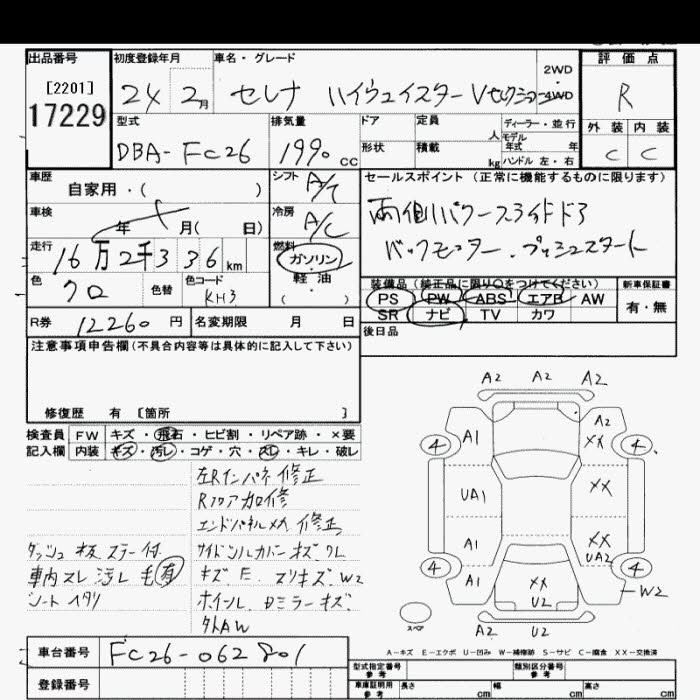 出品番号 初度登録年月 車名・グレード 2WD・4WD 評価点
[2201]
17229
24 2月 セレナ ハイウェイスター Vセレクション
R
型式 排気量 ドア 定員 人 ディーラー・並行
モデル年式 年
外装 内装
DBA-FC26 1990cc 形状 積載 kg ハンドル 左・右
C C
車歴 自家用・( ) シフト A/T
セールスポイント(正常に機能するものに限ります)
車検 年 月( 日) 冷房 A/C
両側パワースライドドア
バックモニター.プッシュスタート
走行 16万2千336km 燃料 ガソリン・軽油・( )
色 クロ 色替 色コード KH3
装備品(純正品に限り○をつけてください) 新車保証書
PS PW ABS エアB AW 有・無
SR ナビ TV カワ
R券 12260円 名変期限 月 日
後日品
注意事項申告欄(不具合内容等は具体的に記入して下さい)
修復歴 有 [箇所 ]
検査員記入欄 FW キズ・飛石・ヒビ割・リペア跡・×要
内装 キズ・汚レ・コゲ・穴・スレ・キレ・破レ
左Rインパネ修正
Rフロア加修
エンドパネルメカ修正
ダッシュ板 ステー付 サイドシルカバーキズ ワレ
車内スレ 汚レ 毛有 キズ.E. スリキズ.W2
シートヘタリ ホイール.Dミラーキズ
外AW
A2 A2 A2
A1 A2 XX
4 4
UA1 XX
A1 XX UA2
4 4
A1 XX U2 W2
スペア
A2 U2
A-キズ E-エクボ U-凹み W-補修跡 S-サビ C-腐食 XX-交換済
車台番号 FC26-062801
登録番号
型式指定番号 参考 類別区分番号 参考
車庫証明用 参考 長さ cm 幅 cm 高さ cm